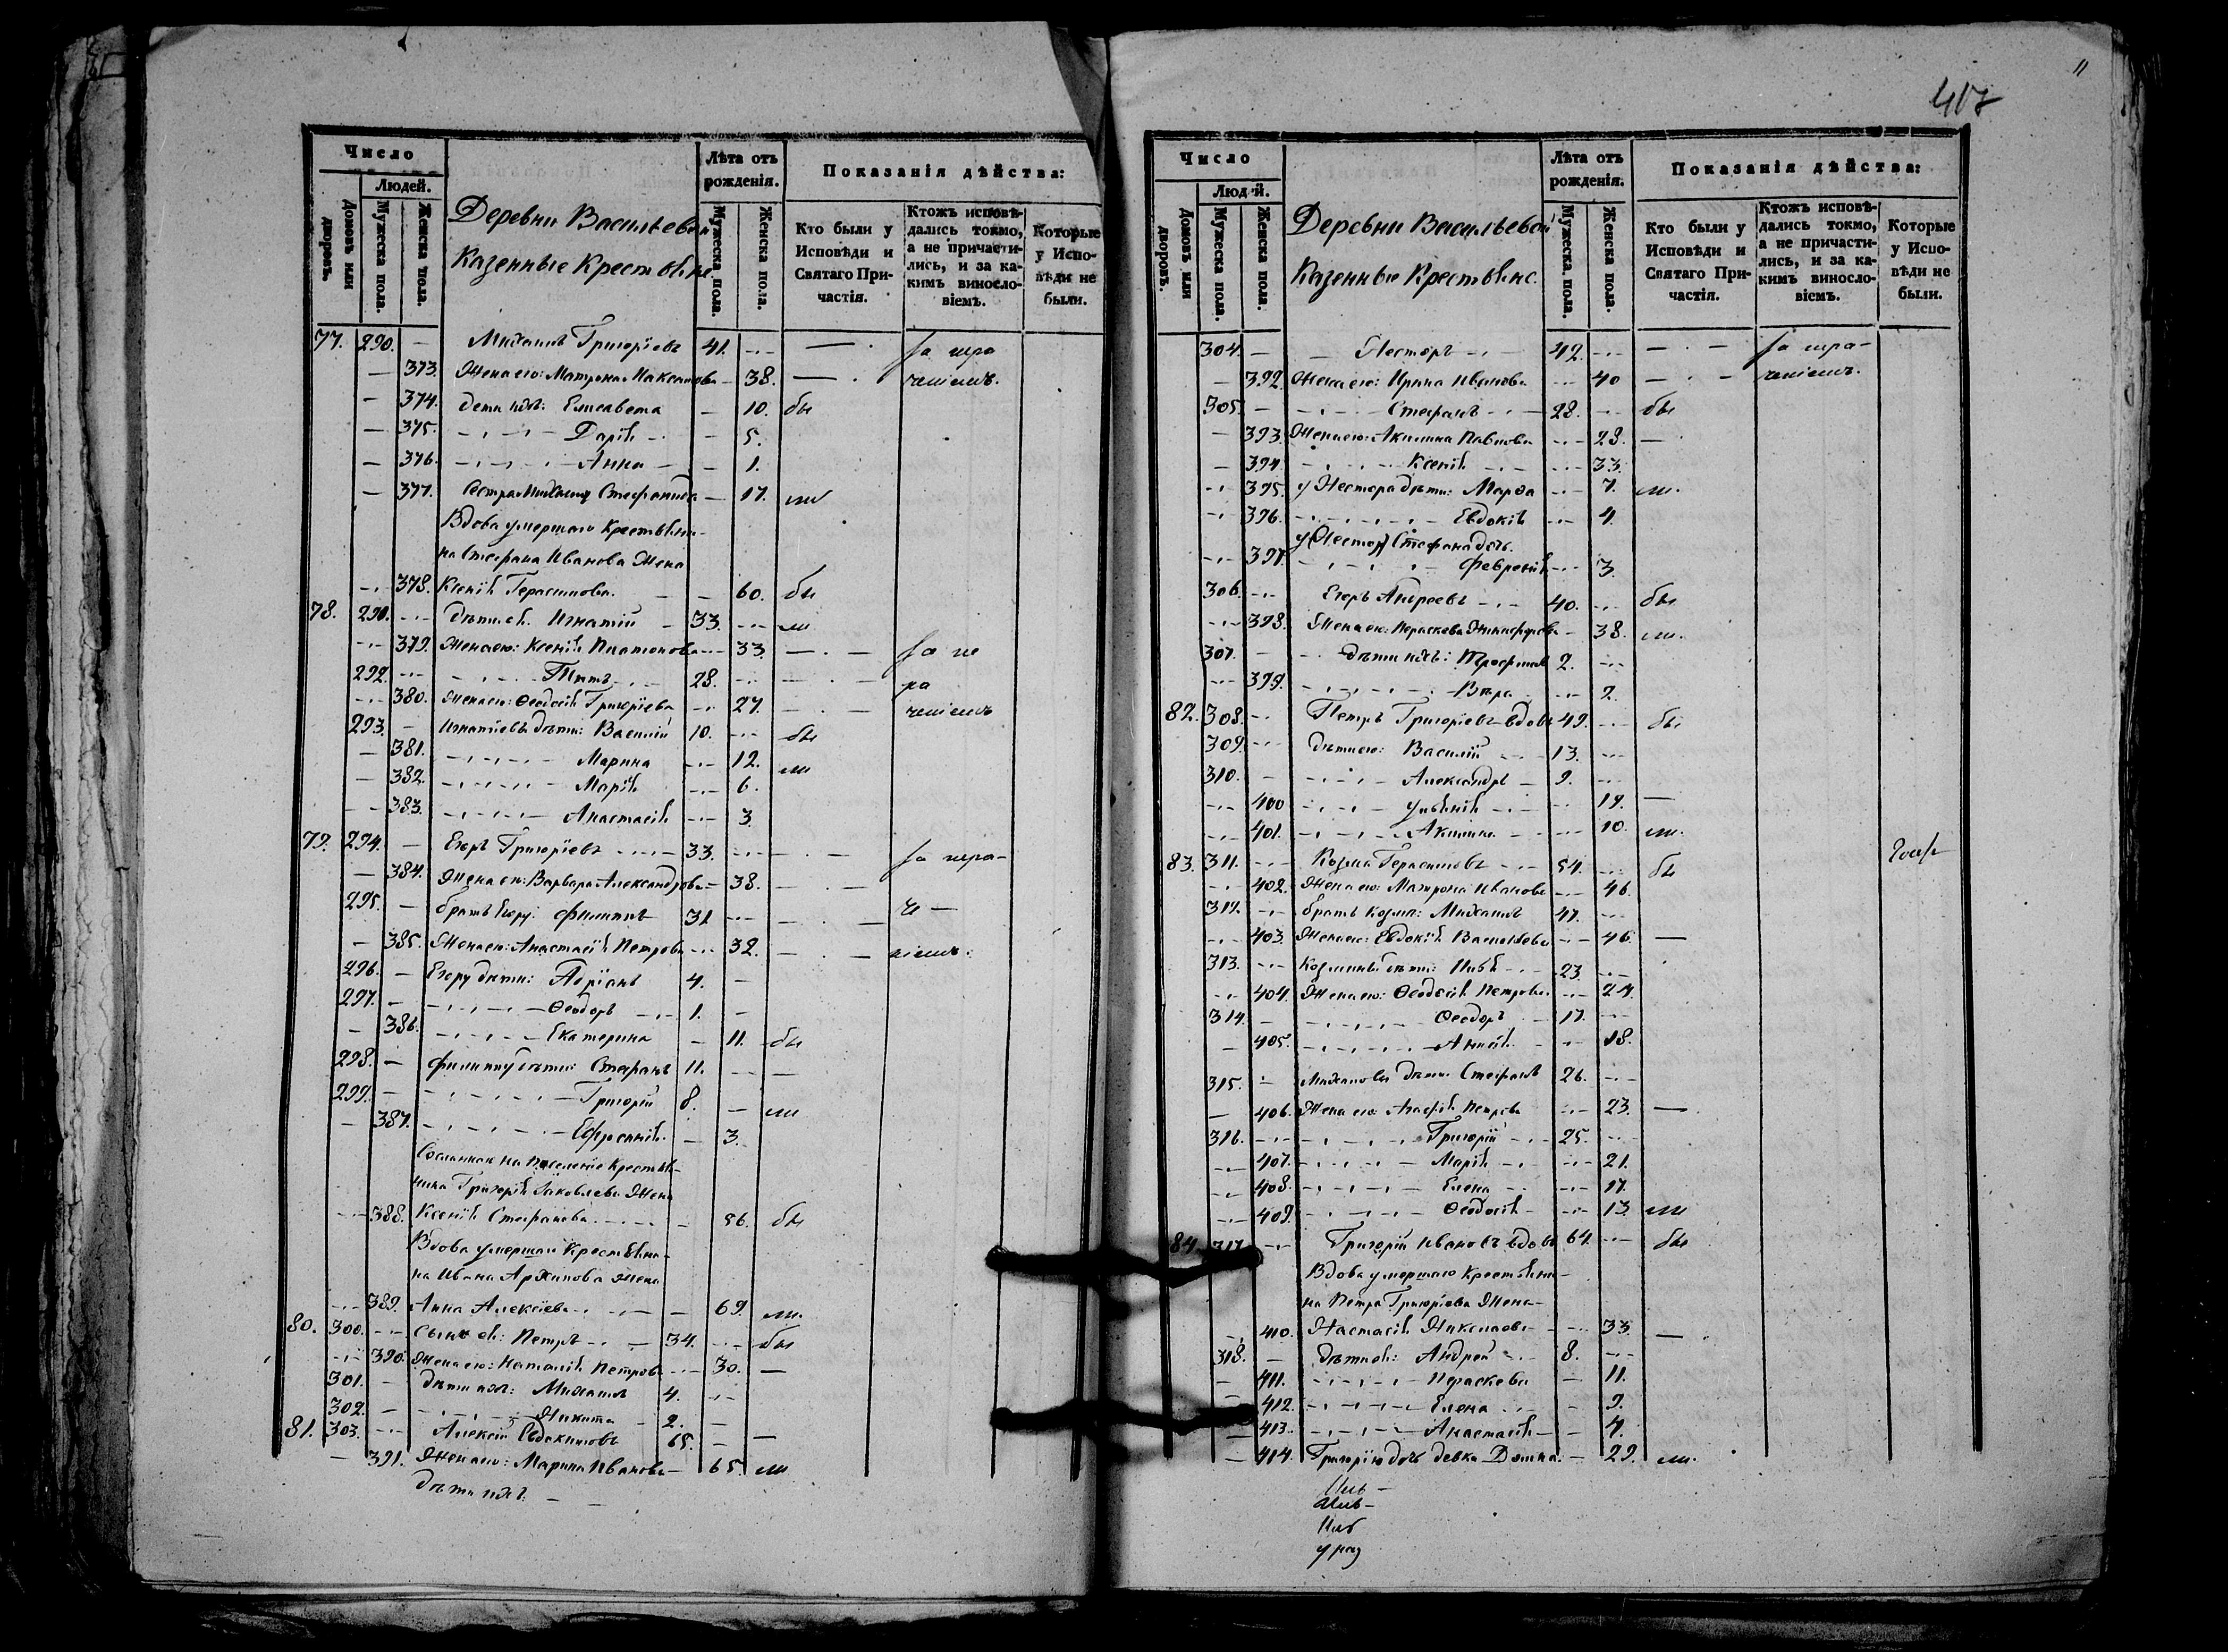 Число
Людей.
Домовъ или дворовъ.
Мужеска пола.
Женска пола.
Деревни Васильевой
Казенные Крестьяне
Лѣта отъ рожденія.
Мужеска пола.
Женска пола.
Показанія дѣйства:
Кто были у Исповѣди и Святаго Причастія.
Ктожъ исповѣдались токмо, а не причастились, и за какимъ винословіемъ.
Которые у Исповѣди не были.
77. 290. — Михаилъ Григорьевъ 41. — За нера
— 373. Жена его: Матрона Максимова — 38. — чениемъ.
— 374. дети ихъ: Елисавета — 10. бы
— 375. Дарія — 5.
— 376. Анна — 1.
— 377. Сестра Михаилу Стефанида — 17. ли
Вдова умершаго Крестьяни-
на Стефана Иванова Жена
378. Ксенія Герасимова. — 60. бы
78. 291. дѣти ея: Игнатій — 33. ли
379. Жена его: Ксенія Платонова 33. — За не
292. Титъ 28. — ра
380. Жена его: Ѳеодосія Григорьева 27. — чениемъ
293. — Игнатіевы дѣти: Василій 10. бы
— 381. Марина 12. ли
— 382. Марія 6.
383. Анастасія 3.
79. 294. — Егоръ Григорьевъ 33. — За нера-
— 384. Жена его: Варвара Александрова 38. —
295. — братъ Егору: Филиппъ 31 — че —
— 385. Жена его: Анастасія Петрова 32. — ніемъ.
296. — Егору дѣти: Адріанъ 4. —
297. — Ѳеодоръ 1. —
— 386. Екатерина — 11. бы
298. — Филиппу дѣти: Стефанъ 11. —
299. — Григорій 8. — ли
— 387. Ефросинія — 3.
Сосланнаго на поселеніе Крестья-
нина Григорія Яковлева Жена
388. Ксенія Стефанова — 56. бы
Вдова умершаго Крестьяни-
на Ивана Архипова жена
389. Анна Алексіева — 69. ли.
80. 300. Сынъ ея: Петръ 34. бы
390. Жена его: Наталія Петрова 30. —
301. — дѣти ихъ: Михаилъ 4.
302. — Никита 2. —
81. 303. Алексій Евдокимовъ 65. — —
— 391. Жена его: Марина Иванова — 65. ли
дѣти ихъ: —
407
11
Число
Людей.
Домовъ или дворовъ.
Мужеска пола.
Женска пола.
Деревни Васильевой
Казенные Крестьяне.
Лѣта отъ рожденія.
Мужеска пола.
Женска пола.
Показанія дѣйства:
Кто были у Исповѣди и Святаго Причастія.
Ктожъ исповѣдались токмо, а не причастились, и за какимъ винословіемъ.
Которые у Исповѣди не были.
304. — Несторъ 42. — За нера-
— 392. Жена его: Ирина Иванова 40 — чениемъ.
305. — Стефанъ 28. бы
— 393. Жена его: Акилина Павлова 28. —
— 394. Ксенія 33.
395. у Нестора дѣти: Марѳа 7. ли.
396. Евдокія 4.
у (Нестор) Стефана дочь.
397. Февронія 3.
306. Егоръ Андреевъ 40. бы
398. Жена его: Параскева Никифорова — 38. ли.
307. — дѣти ихъ: Трофимъ 2.
399. Вѣра 2.
82. 308. Петръ Григорьевъ вдовъ 49. бы
309. дѣти его: Василій 13.
310. — Александръ — 9.
400 Ульянія 19. —
401. Акилина 10. ли.
83. 311. Козма Герасимовъ 54. бы
402. Жена его: Матрона Иванова 46.
312. братъ Козмы: Михаилъ 47.
403. Жена его: Евдокія Васильева 46. —
313. Козмины дѣти: Илья 23.
404. Жена его: Ѳеодосія Петрова 24.
314. — Ѳеодоръ — 17.
— 405. Анисія 18.
315. — Михаиловы дѣти: Стефанъ 26.
— 406. Жена его: Агафія Петрова 23. —
316. Григорій 25.
407. Марія 21.
408. Елена 17.
409. Ѳеодосія 13. ли
84. 317. Григорій Ивановъ вдовъ 64 бы
Вдова умершаго Крестьяни-
на Петра Григорьева Жена
410. Настасія Николаева 33. —
318. — дѣти ея: Андрей 8.
— 411. Параскева — 11.
— 412. Елена — 9.
— 413. Анастасія — 4.
— 414. Григорію дочь девка Домна. — 29. ли.